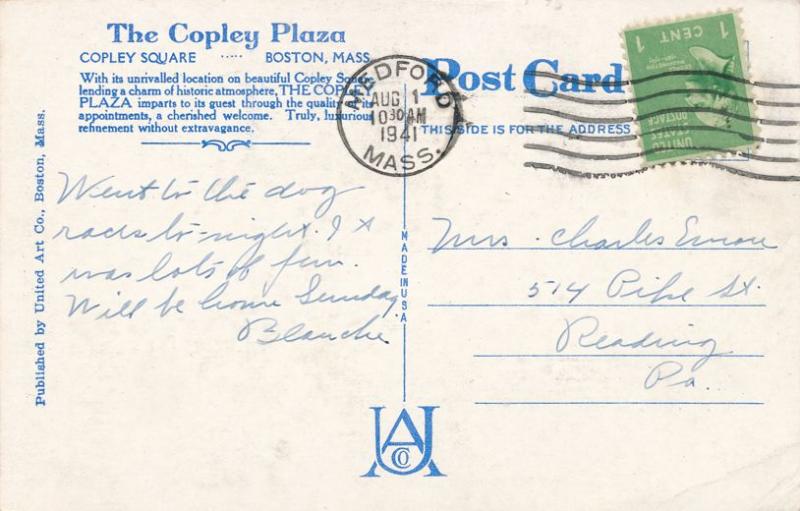 The Copley Plaza
COPLEY SQUARE ..... BOSTON, MASS.
With its unrivalled location on beautiful Copley Square
lending a charm of historic atmosphere, THE COPLEY
PLAZA imparts to its guest through the quality
appointments, a cherished welcome. Truly, luxurious
refinement without extravagance.
Published by United Art Co., Boston, Mass.
Went to the dog
races to-night. It
was lots of fun.
Will be home Sunday
Blanche
MADE IN USA
UACO
Post Card
THIS SIDE IS FOR THE ADDRESS
MEDFORD
AUG 1
10 30 AM
1941
MASS.
1 CENT 1
UNITED
STATES
POSTAGE
Mrs. Charles
514 Pike St.
Reading
Pa.